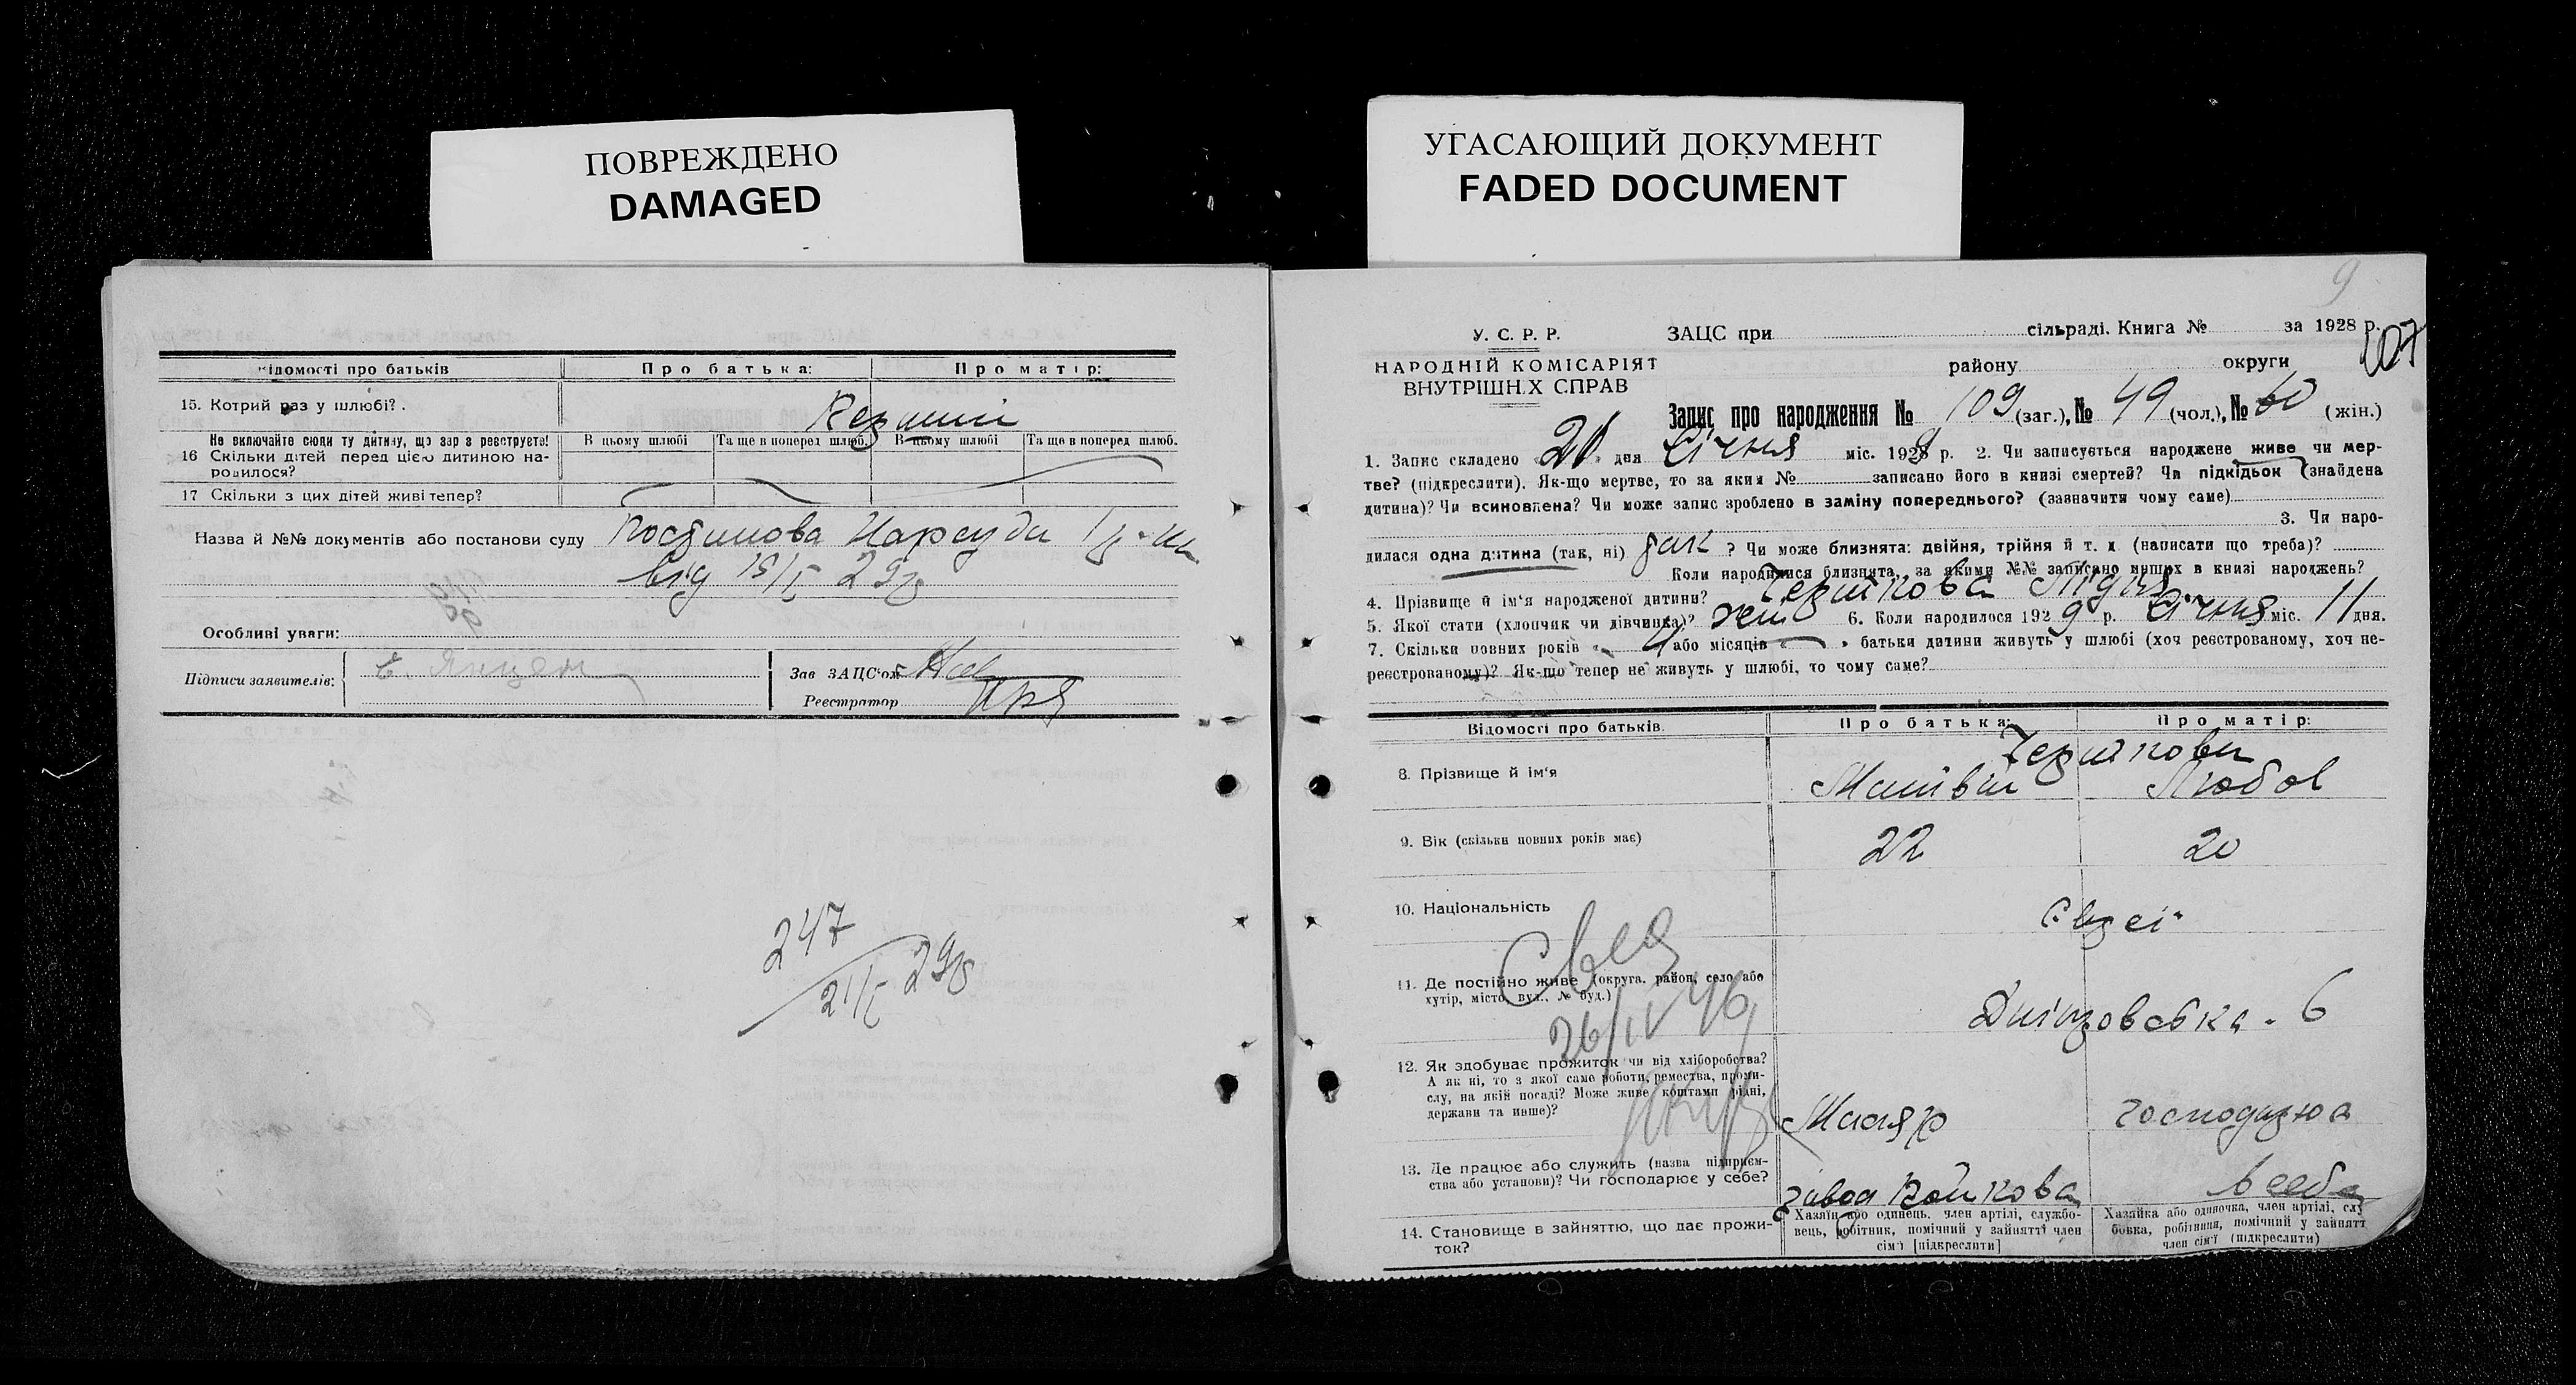 ПОВРЕЖДЕНО
DAMAGED
УГАСАЮЩИЙ ДОКУМЕНТ
FADED DOCUMENT
Відомості про батьків Про батька: Про матір:
15. Котрий раз у шлюбі?.
Не включайте сюди ту дитину, що зар з реєструєте! В цьому шлюбі Та ще в поперед шлюб. В цьому шлюбі Та ще в поперед шлюб.
16 Скільки дітей перед цією дитиною на-
родилося?
17 Скільки з цих дітей живі тепер?
Назва й №№ документів або постанови суду Постанова Нарсуда
від 15/I 29р
Особливі уваги:
Підписи заявителів: Зав ЗАЦС'ом
Реєстратор
247
21/I 29р
9
У. С. Р. Р. ЗАЦС при сільраді. Книга № за 1928 р.
107
НАРОДНІЙ КОМІСАРІЯТ району округи
ВНУТРІШНІХ СПРАВ
Запис про народження № 109 (заг.), № 49 (чол.), № 60 (жін.)
1. Запис складено « 21 » дня Січня міс. 1929 р. 2. Чи записується народжене живе чи мер-
тве? (підкреслити). Як-що мертве, то за яким № записано його в книзі смертей? Чи підкідьок (знайдена
дитина)? Чи всиновлена? Чи може запис зроблено в заміну попереднього? (зазначити чому саме)
3. Чи наро-
дилася одна дитина (так, ні) так ? Чи може близнята: двійня, трійня й т. д (написати що треба)?
Коли народилися близнята, за якими №№ записано инших в книзі народжень?
4. Прізвище й ім'я народженої дитини? Лідія
5. Якої стати (хлопчик чи дівчинка)? жін 6. Коли народилося 1929 р. Січня міс. 11 дня.
7. Скільки повних років « або місяців » батьки дитини живуть у шлюбі (хоч реєстрованому, хоч не-
реєстрованому)? Як-що тепер не живуть у шлюбі, то чому саме?
Відомості про батьків. Про батька: Про матір:
8. Прізвище й ім'я Любов
9. Вік (скільки повних років має) 22 20
10. Національність Євреї
11. Де постійно живе (округа, район, село або
хутір, місто, вул., № буд.) 6
26/IV 46
12. Як здобуває прожиток чи від хліборобства?
А як ні, то з якої саме роботи, ремества, проми-
слу, на якій посаді? Може живе коштами рідні,
держави та инше)? Маляр господарює
13. Де працює або служить (назва підприєм-
ства або установи)? Чи господарює у себе? завод Войкова в себе
14. Становище в зайняттю, що дає прожи-
ток?
Хазяїн або одинець, член артілі, службо-
вець, робітник, помічний у зайнятті член
сім'ї [підкреслити]
Хазяйка або одиночка, член артілі, слу
бовка, робітниця, помічний у зайнятт
член сім'ї (підкреслити)